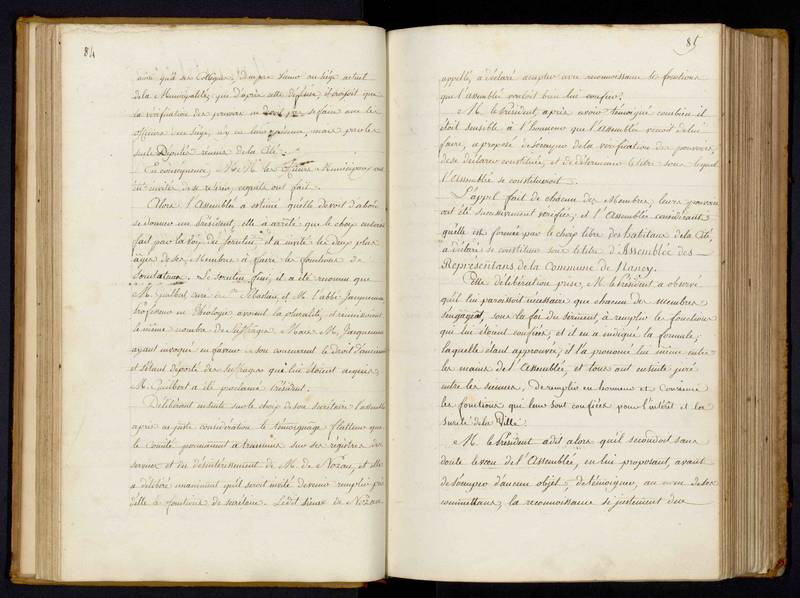 84
ainsi qu'à ses Collègues, d'emprs au siège actuel
de la Municipalité, que d'après cette il croyoit que
la vérification des pouvoirs ne devoit pas se faire avec les
officiers du siège, ny en leur présence, mais par les
seuls Députés réunis de la Cité.
En conséquence, M.M. les officiers Municipaux ont
été invités de se retirer, ce qu'ils ont fait.
Alors l'Assemblée a estimé qu'elle devoit d'abord
se donner un Président, elle a arrêté que le choix en seroit
fait par la voix du scrutin, et a invité les deux plus
âgés de ses Membres à faire les fonctions de
Scrutateurs. Le scrutin fini, il a été reconnu que
M. Guilbert curé de St Sébastien, et M. l'abbé Jacquemin
Professeur en Théologie avoient la pluralité, et réunissoient
le même nombre de suffrages. Mais M. Jacquemin
ayant invoqué en faveur de son concurrent le droit d'
et s'étant déporté des suffrages qui lui étoient acquis
M. Guilbert a été proclamé Président.
Délibérant ensuite sur le choix de son secrétaire l'assemblée
après en juste considération le témoignage flatteur que
le Comité permanent a transmis sur ses registres du
et du désintéressement de M. de Nozan, et elle
a délibéré unanimement qu'il seroit invité de venir remplir près
d'elle les fonctions de secrétaire. Ledit Sieur de Nozan
85
appellé, a déclaré accepter avec reconnoissance les fonctions
que l'Assemblée vouloit bien lui confier.
M. le Président, après avoir témoigné combien il
étoit sensible à l'honneur que l'Assemblée venoit de lui
faire, a proposé de s'occuper de la vérification des pouvoirs,
de se déclarer constituée, et de déterminer le titre sous lequel
l'Assemblée se constitueroit.
L'appel fait de chacun des Membres, leurs pouvoirs
ont été successivement vérifiés, et l'Assemblée considérant
qu'elle est formée par le choix libre des habitans de la Cité,
a déclaré se constituer sous le titre d'Assemblée des
Représentans de la Commune de Nancy.
Cette délibération prise, M. le Président a observé
qu'il lui paroissoit nécessaire que chacun des membres
s'engageât, sous la foi du serment, à remplir les fonctions
qui lui étoient confiées, et il en a indiqué la formule,
laquelle étant approuvée, il l'a prononcé lui même entre
les mains de l'Assemblée, et tous ont ensuite juré
entre les siennes, de remplir en honneur et Conscience
les fonctions qui leur sont confiées pour l'intérêt et la
sureté de la Ville.
M. le Président a dit alors qu'il secondoit sans
doute le voeu de l'Assemblée, en lui proposant, avant
de s'occuper d'aucun objet, de témoigner, au nom de ses
committans, la reconnoissance si justement due